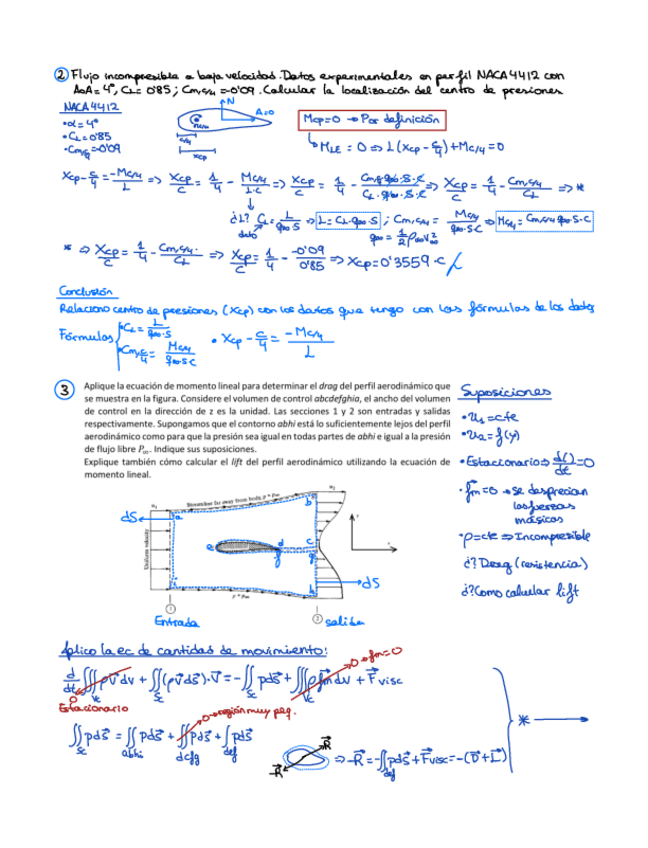 ② Flujo incompresible a baja velocidad. Datos experimentales en perfil NACA4412 con
AoA = 4°, CL = 0'85; Cm,c/4 = -0'09. Calcular la localización del centro de presiones
NACA4412
• α = 4°
• CL = 0'85
• Cm,c/4 = -0'09
N
A=0
Mc/4
c/4
xcp
Mcp=0 → Por definición
↳ MLE = 0 ⇒ L(xcp - c/4) + Mc/4 = 0
xcp - c/4 = -Mc/4 / L ⇒ xcp/c = 1/4 - Mc/4 / L·c ⇒ xcp/c = 1/4 - Cm,c/4·q∞·S·c / CL·q∞·S·c ⇒ xcp/c = 1/4 - Cm,c/4 / CL ⇒ *
¿L? CL = L / q∞·S ⇒ L = CL·q∞·S ; Cm,c/4 = Mc/4 / q∞·S·C ⇒ Mc/4 = Cm,c/4 q∞·S·C
dato
q∞ = 1/2 ρ∞ V∞²
* ⇒ xcp/c = 1/4 - Cm,c/4 / CL ⇒ xcp/c = 1/4 - -0'09 / 0'85 ⇒ xcp = 0'3559·c
Conclusión
Relaciono centro de presiones (xcp) con los datos que tengo con las fórmulas de los datos
Fórmulas
• CL = L / q∞·S
• Cm,c/4 = Mc/4 / q∞·S·C
• xcp - c/4 = -Mc/4 / L
③ Aplique la ecuación de momento lineal para determinar el drag del perfil aerodinámico que
se muestra en la figura. Considere el volumen de control abcdefghia, el ancho del volumen
de control en la dirección de z es la unidad. Las secciones 1 y 2 son entradas y salidas
respectivamente. Supongamos que el contorno abhi está lo suficientemente lejos del perfil
aerodinámico como para que la presión sea igual en todas partes de abhi e igual a la presión
de flujo libre P∞. Indique sus suposiciones.
Explique también cómo calcular el lift del perfil aerodinámico utilizando la ecuación de
momento lineal.
Suposiciones
• u1 = cte
• u2 = f(y)
• Estacionario ⇒ d()/dt = 0
• fm = 0 → se desprecian
las fuerzas
másicas
• ρ = cte ⇒ Incompresible
¿? Drag (resistencia)
¿? Como calcular lift
Streamline far away from body, p = p∞
Uniform velocity
p = p∞
u1
u2
a
b
c
d
e
f
g
h
i
y
x
dS
dS
1
2
Entrada
salida
Aplico la ec de cantidad de movimiento:
d/dt ∭Vc ρV⃗ dv + ∬Sc (ρV⃗ dS⃗)·V⃗ = -∬Sc p dS⃗ + ∭Vc ρ f⃗m dv + F⃗visc
0
Estacionario
0 → fm=0
∬Sc p dS⃗ = ∬abhi p dS⃗ + ∬dcfg p dS⃗ + ∫def p dS⃗
0 → región muy peq.
R⃗
-R⃗
⇒ -R⃗ = -∬def p dS⃗ + F⃗visc = -(D⃗ + L⃗)
* →